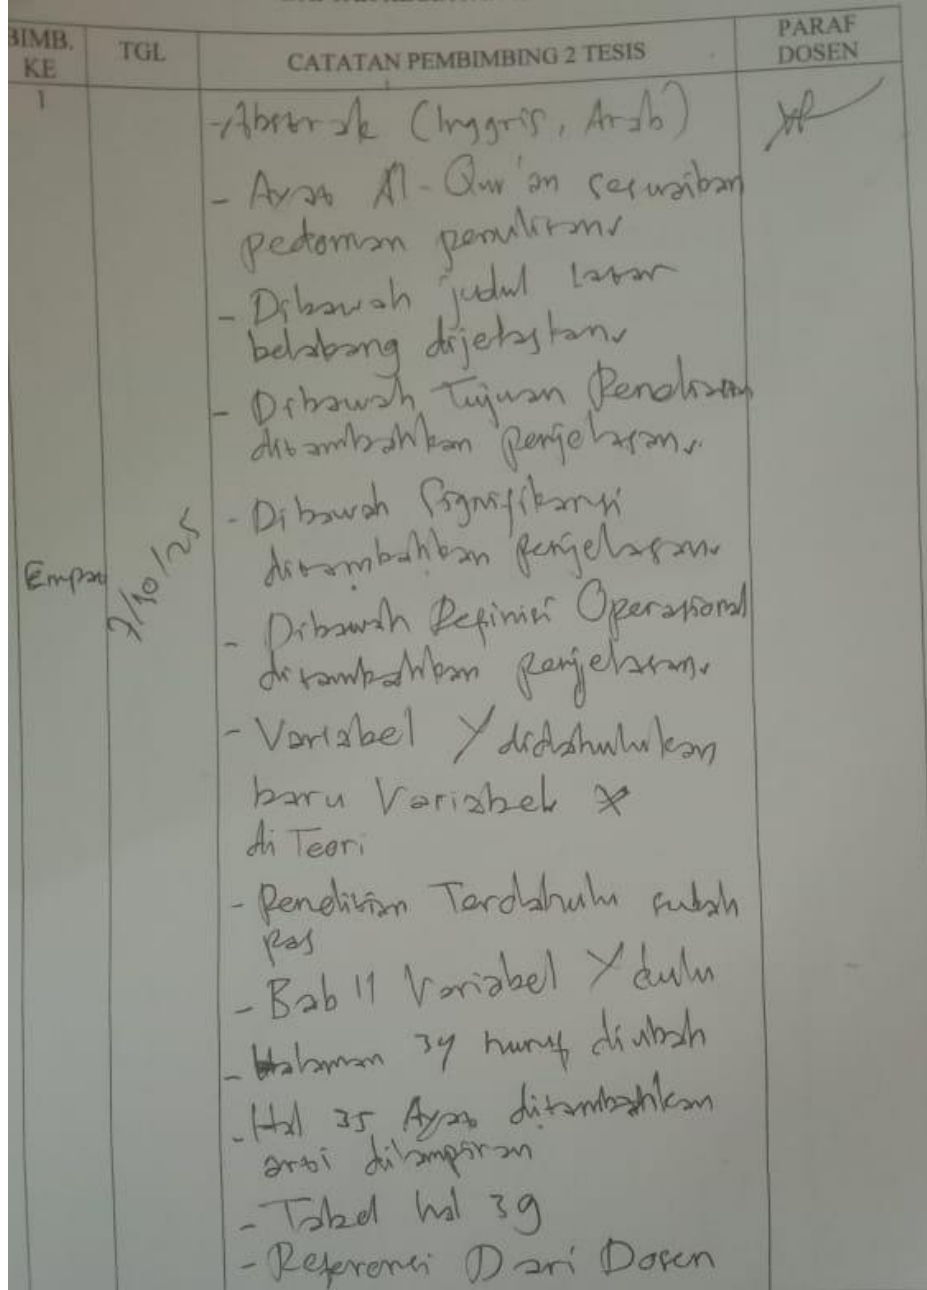 BIMB. KE
TGL
CATATAN PEMBIMBING 2 TESIS
PARAF DOSEN
1
Empat
7/10/25
- Abstrak (Inggris, Arab)
- Ayat Al-Qur'an sesuaikan
pedoman penulisan
- Dibawah judul latar
belakang dijelaskan
- Dibawah Tujuan Penelitian
ditambahkan penjelasan
- Dibawah Signifikansi
ditambahkan penjelasan
- Dibawah Definisi Operasional
ditambahkan penjelasan
- Variabel Y didahulukan
baru Variabel X
di Teori
- Penelitian Terdahulu sudah
pas
- Bab II Variabel Y dulu
- Halaman 34 huruf diubah
- Hal 35 Ayat ditambahkan
arti dilampiran
- Tabel hal 39
- Referensi Dari Dosen